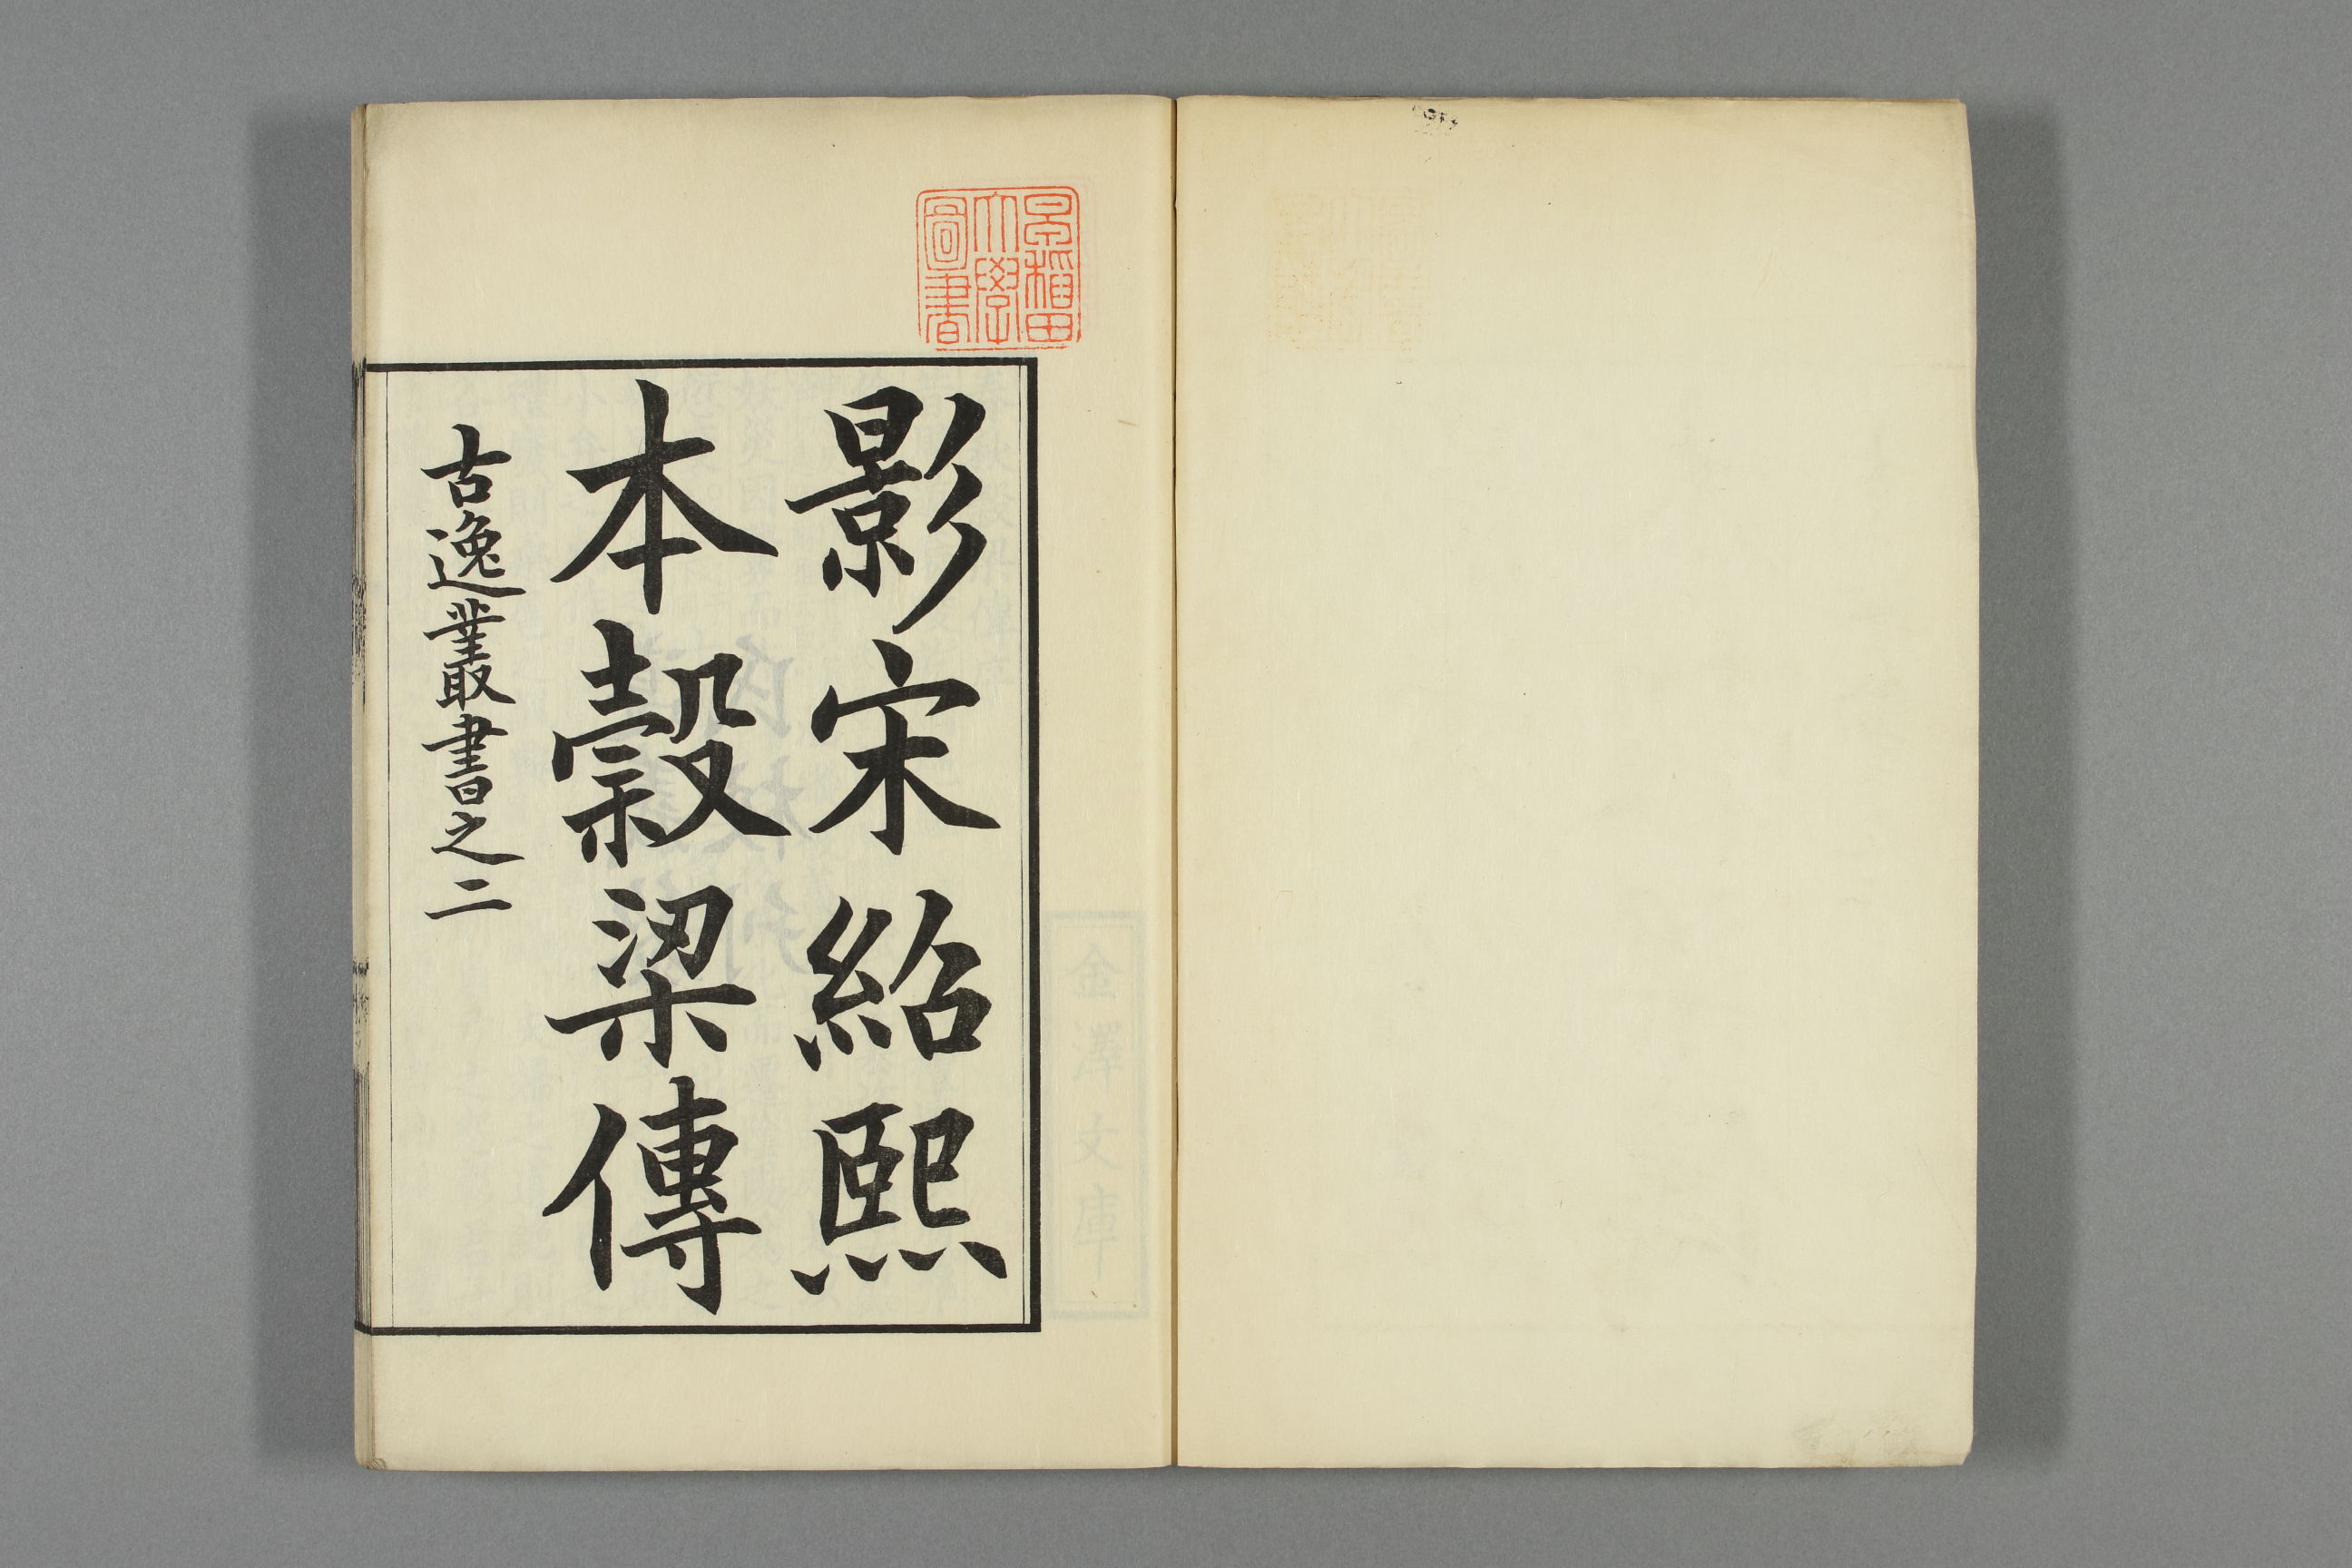 早稲田
大學
圖書
影宋紹熙
本穀梁傳
古逸叢書之二
金澤文庫